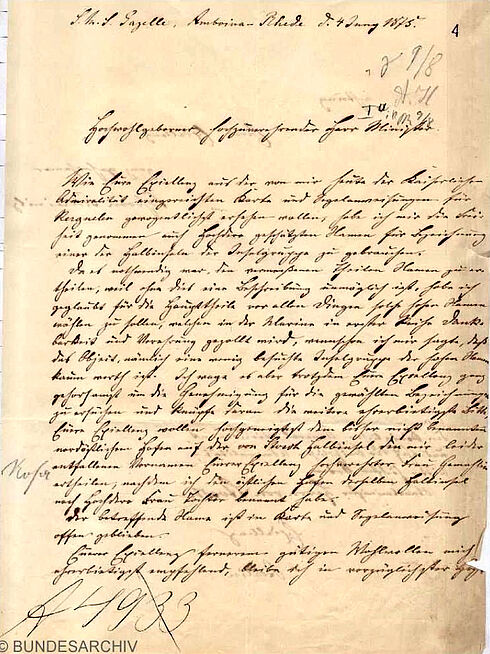 S.M.S. Gazelle, Amboina-Rhede d. 4 Juny 1875.
4
9/8
A. II
Hochwohlgeborner, hochzuverehrender Herr Minister.
Wie Eure Excellenz aus der von mir heute der Kaiserlichen
Admiralität eingereichten Karte und Segelanweisungen für
Kerguelen hochgeneigtest ersehen wollen, habe ich mir die Frei-
heit genommen auch Hochdero geschätzten Namen für Bezeichnung
einer der Halbinseln der Inselgruppe zu gebrauchen.
Da es nothwendig war, den vermessenen Theilen Namen zu er-
theilen, weil ohne dies eine Beschreibung unmöglich ist, habe ich
geglaubt für die Haupttheile vor allen Dingen solch hohe Namen
wählen zu sollen, welchen in der Marine in erster Reihe Dank-
barkeit und Verehrung gezollt wird, wenngleich ich mir sagte, daß
das Objekt, nämlich eine wenig besuchte Inselgruppe der hohen Namen
kaum werth ist. Ich wage es aber trotzdem Eure Excellenz ganz
gehorsamst um die Genehmigung für die gewählten Bezeichnungen
zu ersuchen und knüpfe daran die weitere ehrerbietigste Bitte
Eure Excellenz wollen hochgeneigtest dem bisher nicht benannten
nordöstlichen Hafen auf der von Halbinsel den mir leider
entfallenen Vornamen Eurer Excellenz hochverehrter Frau Gemahlin
ertheilen, nachdem ich den östlichen Hafen derselben Halbinsel
nach Hochdero Frau Tochter benannt habe.
Der betreffende Name ist in Karte und Segelanweisung
offen geblieben.
Eurer Excellenz fernerem gütigen Wohlwollen mich
ehrerbietigst empfehlend, bleibe ich in vorzüglichster
A 4933
© BUNDESARCHIV